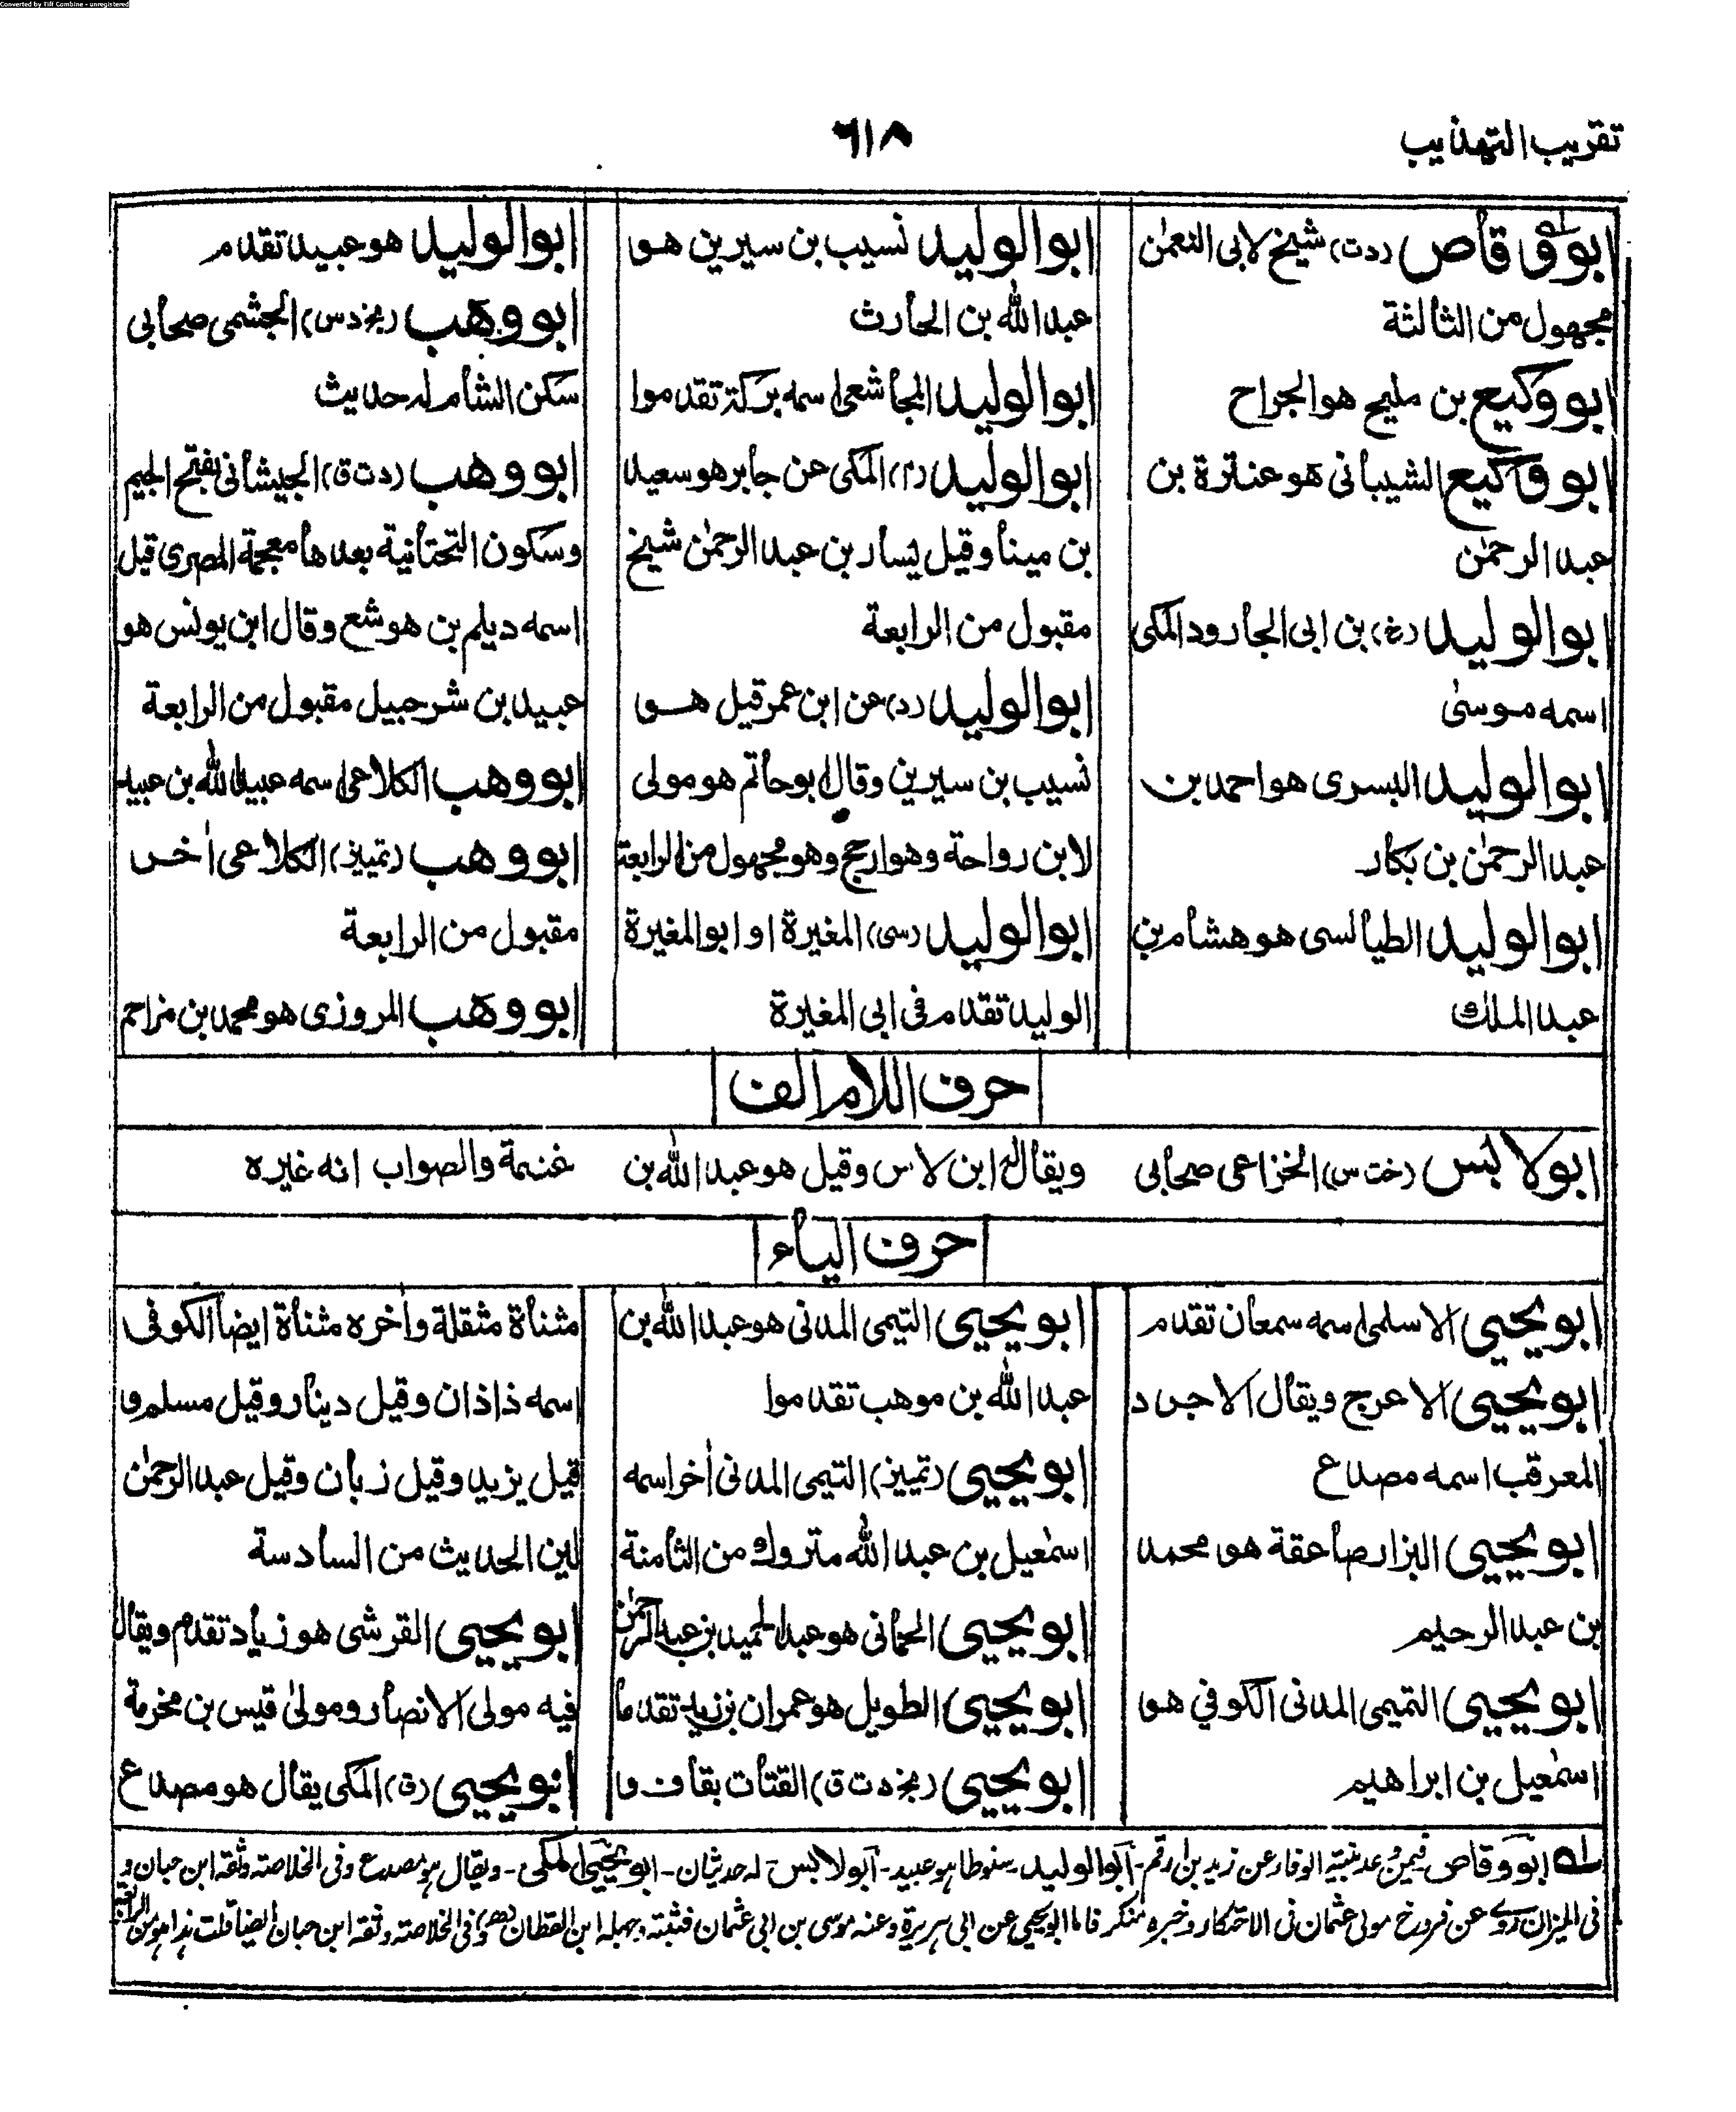 Converted by Tiff Combine - unregistered
تقريب التهذيب
٦١٨
ابو وقاص (دت) شيخ لابى النعمٰن
مجهول من الثالثة
ابو وكيع بن مليح هو الجراح
ابو وكيع الشيبانى هو عنترة بن
عبد الرحمٰن
ابو الوليد (غ) بن ابى الجارود المكى
اسمه موسىٰ
ابو الوليد البسرى هو احمد بن
عبد الرحمٰن بن بكار
ابو الوليد الطيالسى هو هشام بن
عبد الملك
ابو الوليد نسيب بن سيرين هو
عبد الله بن الحارث
ابو الوليد المجاشعى اسمه بركة تقدموا
ابو الوليد (م) المكى عن جابر هو سعيد
بن مينا وقيل يسار بن عبد الرحمٰن شيخ
مقبول من الرابعة
ابو الوليد (د) عن ابن عمر قيل هو
نسيب بن سيرين وقال ابو حاتم هو مولى
لابن رواحة وهو ارجح وهو مجهول من الرابعة
ابو الوليد (سى) المغيرة او ابو المغيرة
الوليد تقدم فى ابى المغيرة
ابو الوليد هو عبيد تقدم
ابو وهب (بخ دس) الجشمى صحابى
سكن الشام له حديث
ابو وهب (دت ق) الجيشانى بفتح الجيم
وسكون التحتانية بعدها معجمة المصرى قيل
اسمه ديلم بن هوشع وقال ابن يونس هو
عبيد بن شرحبيل مقبول من الرابعة
ابو وهب الكلاعى اسمه عبيد الله بن عبيد
ابو وهب (تمييز) الكلاعى اٰخر
مقبول من الرابعة
ابو وهب المروزى هو محمد بن مزاحم
حرف اللام الف
ابو لابس (خت س) الخزاعى صحابى ويقال له ابن لاس وقيل هو عبد الله بن غنمة والصواب انه غيره
حرف الياء
ابو يحيى الاسلمى اسمه سمعان تقدم
ابو يحيى الاعرج ويقال الاجرد
المعرقب اسمه مصدع
ابو يحيى البزار صاعقة هو محمد
بن عبد الرحيم
ابو يحيى التميمى المدنى الكوفي هو
اسمٰعيل بن ابراهيم
ابو يحيى التيمى المدنى هو عبد الله بن
عبد الله بن موهب تقدموا
ابو يحيى (تمييز) التيمى المدنى اٰخر اسمه
اسمٰعيل بن عبد الله متروك من الثامنة
ابو يحيى الحمانى هو عبد الحميد بن عبد الرحمٰن
ابو يحيى الطويل هو عمران بن زيد تقدما
ابو يحيى (بخ د ت ق) القتات بقاف و
مثناة مثقلة واٰخره مثناة ايضا الكوفى
اسمه ذاذان وقيل دينار وقيل مسلم و
قيل يزيد وقيل زبان وقيل عبد الرحمٰن
لين الحديث من السادسة
ابو يحيى القرشى هو زياد تقدم ويقال
فيه مولى الانصار ومولىٰ قيس بن مخرمة
ابو يحيى (ق) المكى يقال هو مصدع
له ابو وقاص فيمن عد بنية الوفار عن زيد بن ارقم - ابو الوليد - سنوطا هو عبيد - ابو لابس له حديثان - ابو يحيى المكى - ويقال هو مصدع وفى الخلاصة وثقه ابن حبان و
فى الميزان روى عن فروخ مولى عثمان فى الاحتكار وخبره منكر فاما ابو يحيى عن ابى هريرة وعنه موسى بن ابى عثمان فثبته وجهله ابن القطان وفى الخلاصة وثقه ابن حبان ايضا قلت هذا هو من الرابعة